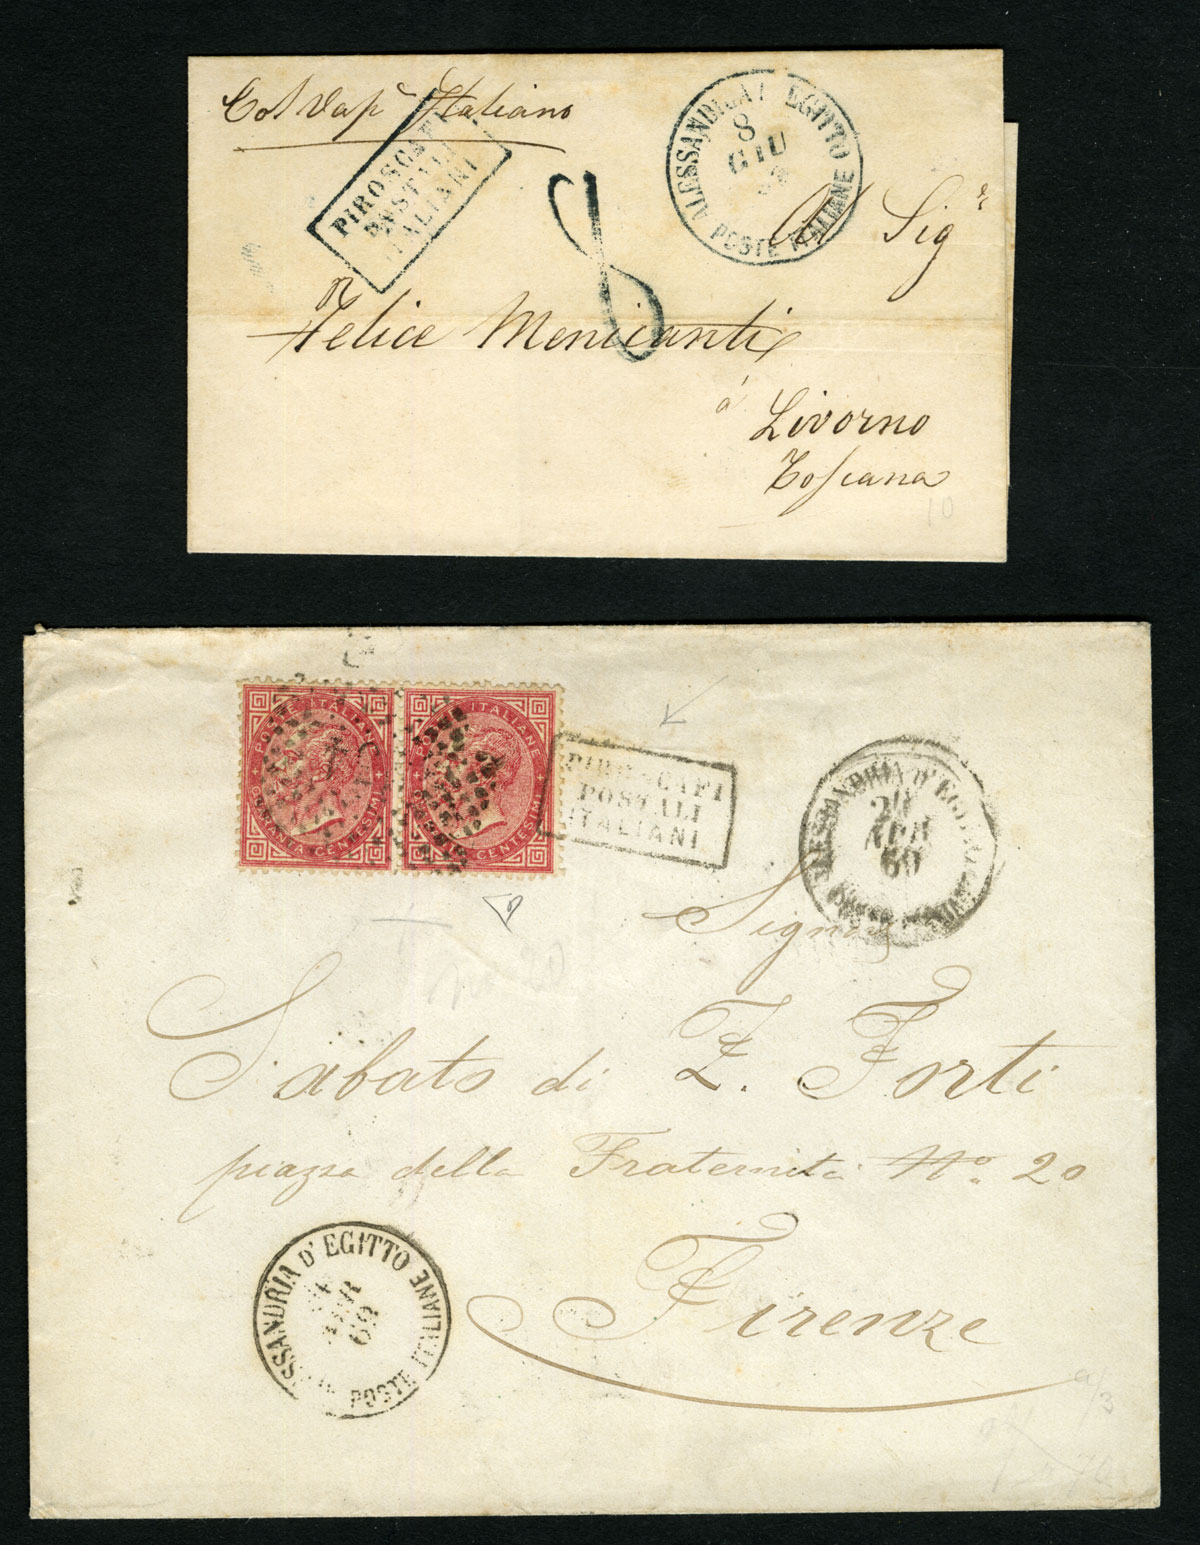 Col Vap.e Italiano
PIROSCAFI
POSTALI
ITALIANI
ALESSANDRIA D'EGITTO
8
GIU
POSTE ITALIANE
8
Al Sig.r
Felice Menicanti
á
Livorno
Toscana
10
POSTE ITALIANE
QUARANTA CENTESIMI
POSTE ITALIANE
QUARANTA CENTESIMI
PIROSCAFI
POSTALI
ITALIANI
ALESSANDRIA D'EGITTO
APR
69
POSTE ITALIANE
Signor
no 20
Sabato di Z. Forti
piazza della Fraternita No. 20
Firenze
ALESSANDRIA D'EGITTO
APR
69
POSTE ITALIANE